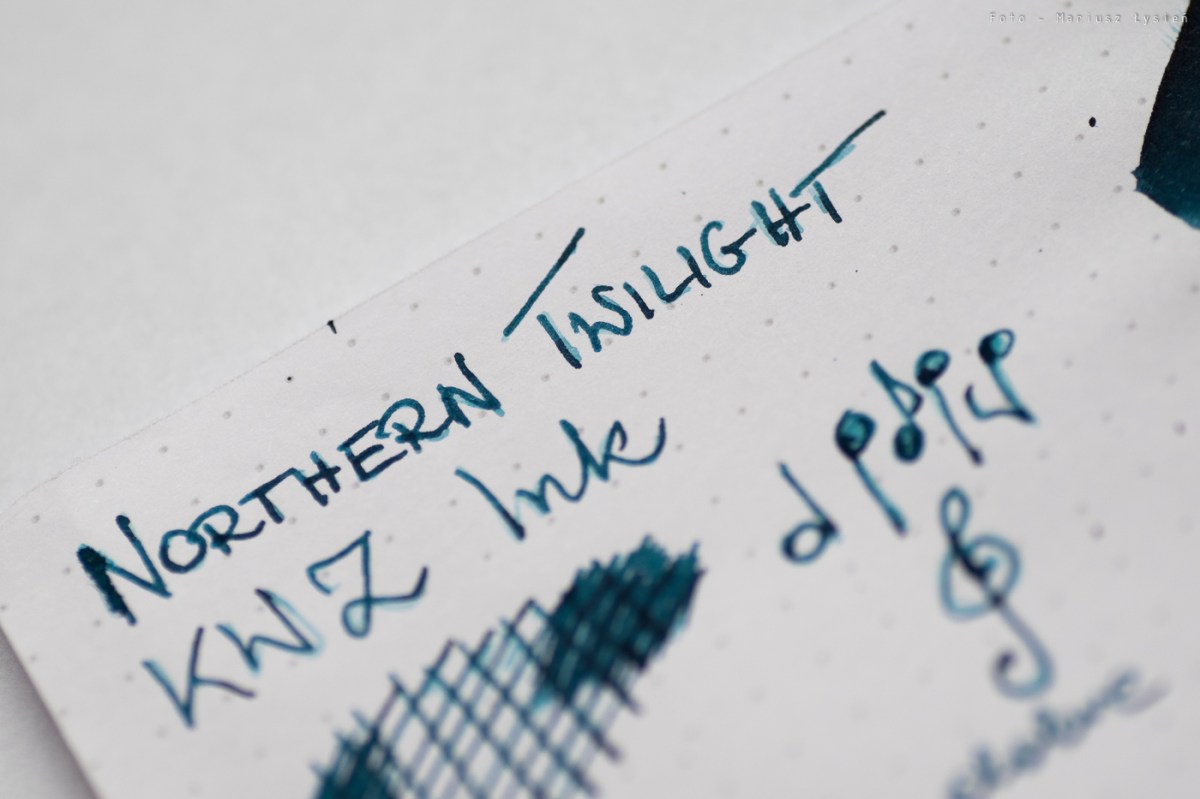 Foto - Mariusz Łysień
NORTHERN TWILIGHT
KWZ Ink